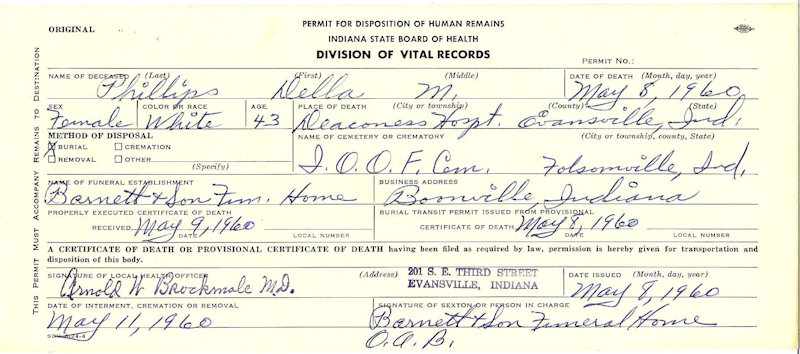 ORIGINAL
PERMIT FOR DISPOSITION OF HUMAN REMAINS
INDIANA STATE BOARD OF HEALTH
DIVISION OF VITAL RECORDS
PERMIT NO.:
THIS PERMIT MUST ACCOMPANY REMAINS TO DESTINATION
NAME OF DECEASED (Last) (First) (Middle) DATE OF DEATH (Month, day, year)
Phillips Della M. May 8, 1960
SEX COLOR OR RACE AGE PLACE OF DEATH (City or township) (County) (State)
Female White 43 Deaconess Hospt. Evansville, Ind.
METHOD OF DISPOSAL NAME OF CEMETERY OR CREMATORY (City or township, county, State)
BURIAL CREMATION
REMOVAL OTHER
(Specify)
I.O.O.F. Cem. Folsomville, Ind.
NAME OF FUNERAL ESTABLISHMENT BUSINESS ADDRESS
Barnett & Son Fun. Home Boonville, Indiana
PROPERLY EXECUTED CERTIFICATE OF DEATH BURIAL TRANSIT PERMIT ISSUED FROM PROVISIONAL
RECEIVED May 9, 1960 CERTIFICATE OF DEATH May 8, 1960
DATE LOCAL NUMBER DATE LOCAL NUMBER
A CERTIFICATE OF DEATH OR PROVISIONAL CERTIFICATE OF DEATH having been filed as required by law, permission is hereby given for transportation and
disposition of this body.
SIGNATURE OF LOCAL HEALTH OFFICER (Address) 201 S. E. THIRD STREET DATE ISSUED (Month, day, year)
Arnold W Brockmole M.D. EVANSVILLE, INDIANA May 8, 1960
DATE OF INTERMENT, CREMATION OR REMOVAL SIGNATURE OF SEXTON OR PERSON IN CHARGE
May 11, 1960 Barnett & Son Funeral Home
O.A.B.